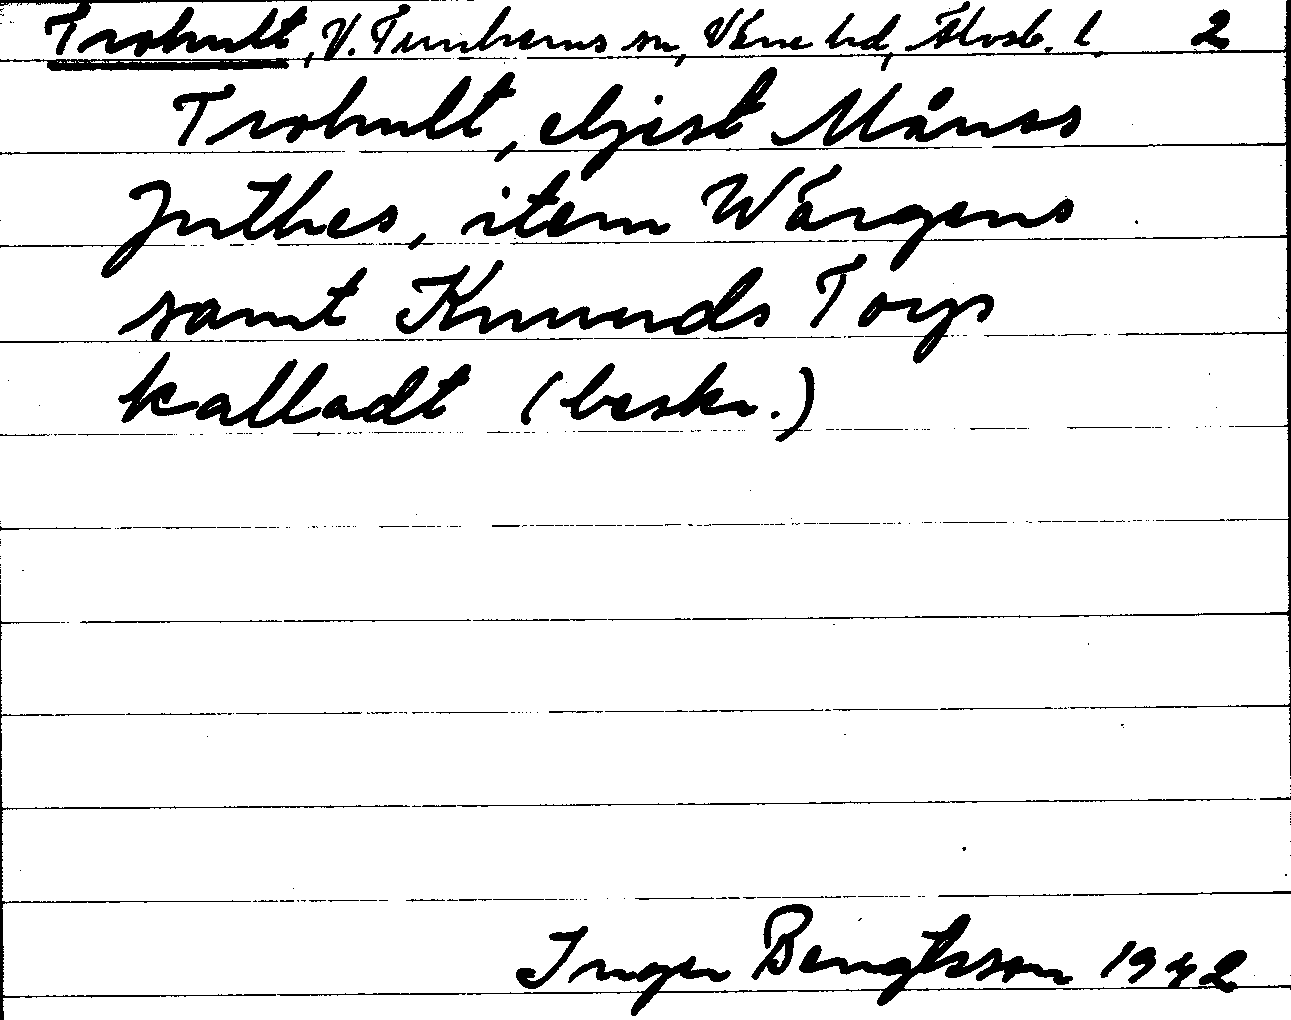 Trohult, V. Tunhems sn, Väne hd, Älvsb. l. 2
Trohult, eljest Månss
Juthes, item Wårgens
samt Knuuds Torp
kalladt (beskr.)
Inger Bengtsson 1942